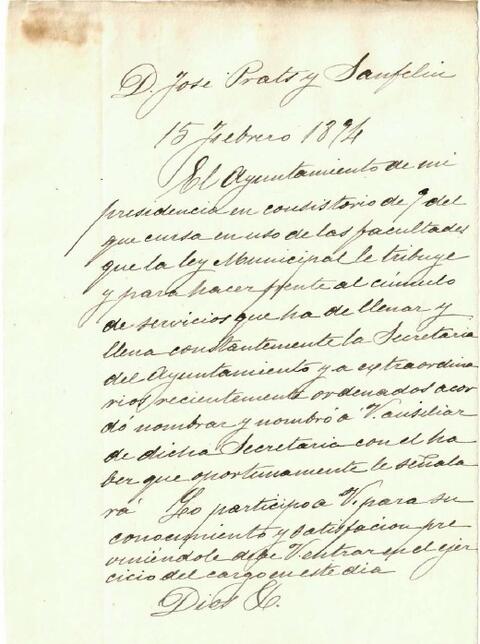 D. José Prats y Sanfeliu
15 Febrero 1894
El Ayuntamiento de mi
presidencia en consistorio de 9 del
que cursa en uso de las facultades
que la ley Municipal le tribuye
y para hacer frente al cúmulo
de servicios que ha de llenar y
llena constantemente la Secretaria
del Ayuntamiento y a extraordina
rios recientemente ordenados acor
dó nombrar y nombró á V. ausiliar
de dicha Secretaria con el ha
ber que oportunamente le señala
rá Lo participo a V. para su
conocimiento y satisfacion pre
viniéndole debe V. entrar en el ejer
cicio del cargo en este dia
Dios &.